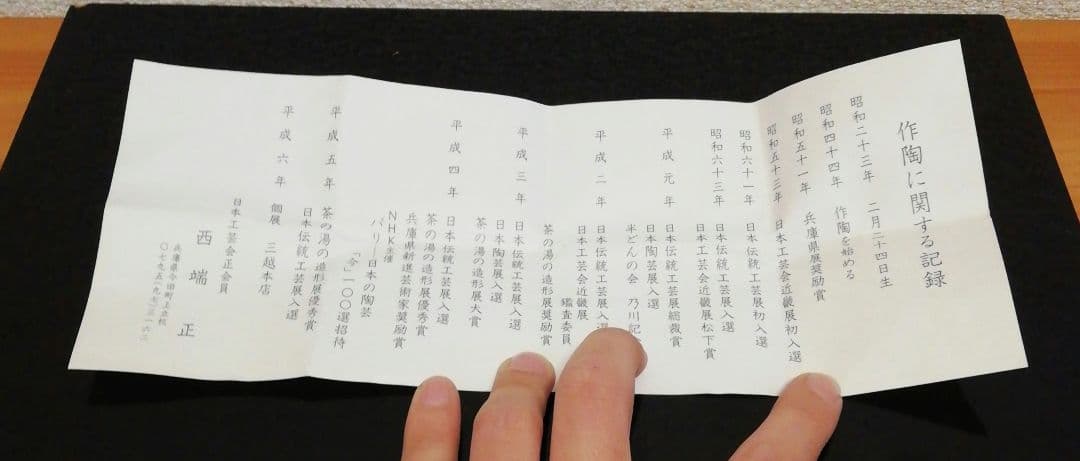 作陶に関する記録
昭和二十三年 二月二十四日生
昭和四十四年 作陶を始める
昭和五十一年 兵庫県展奨励賞
昭和五十三年 日本工芸会近畿展初入選
昭和六十一年 日本伝統工芸展初入選
昭和六十三年 日本伝統工芸展入選
日本工芸会近畿展松下賞
平成元年 日本伝統工芸展総裁賞
日本陶芸展入選
半どんの会 乃川記
平成二年 日本伝統工芸展入選
日本工芸会近畿展 鑑査委員
茶の湯の造形展奨励賞
平成三年 日本伝統工芸展入選
日本陶芸展入選
茶の湯の造形展大賞
平成四年 日本伝統工芸展入選
茶の湯の造形展優秀賞
兵庫県新進芸術家奨励賞
NHK主催
パリ―日本の陶芸
「今」一〇〇選招待
平成五年 茶の湯の造形展優秀賞
日本伝統工芸展入選
平成六年 個展 三越本店
日本工芸会正会員
西端 正
兵庫県今田町上立杭